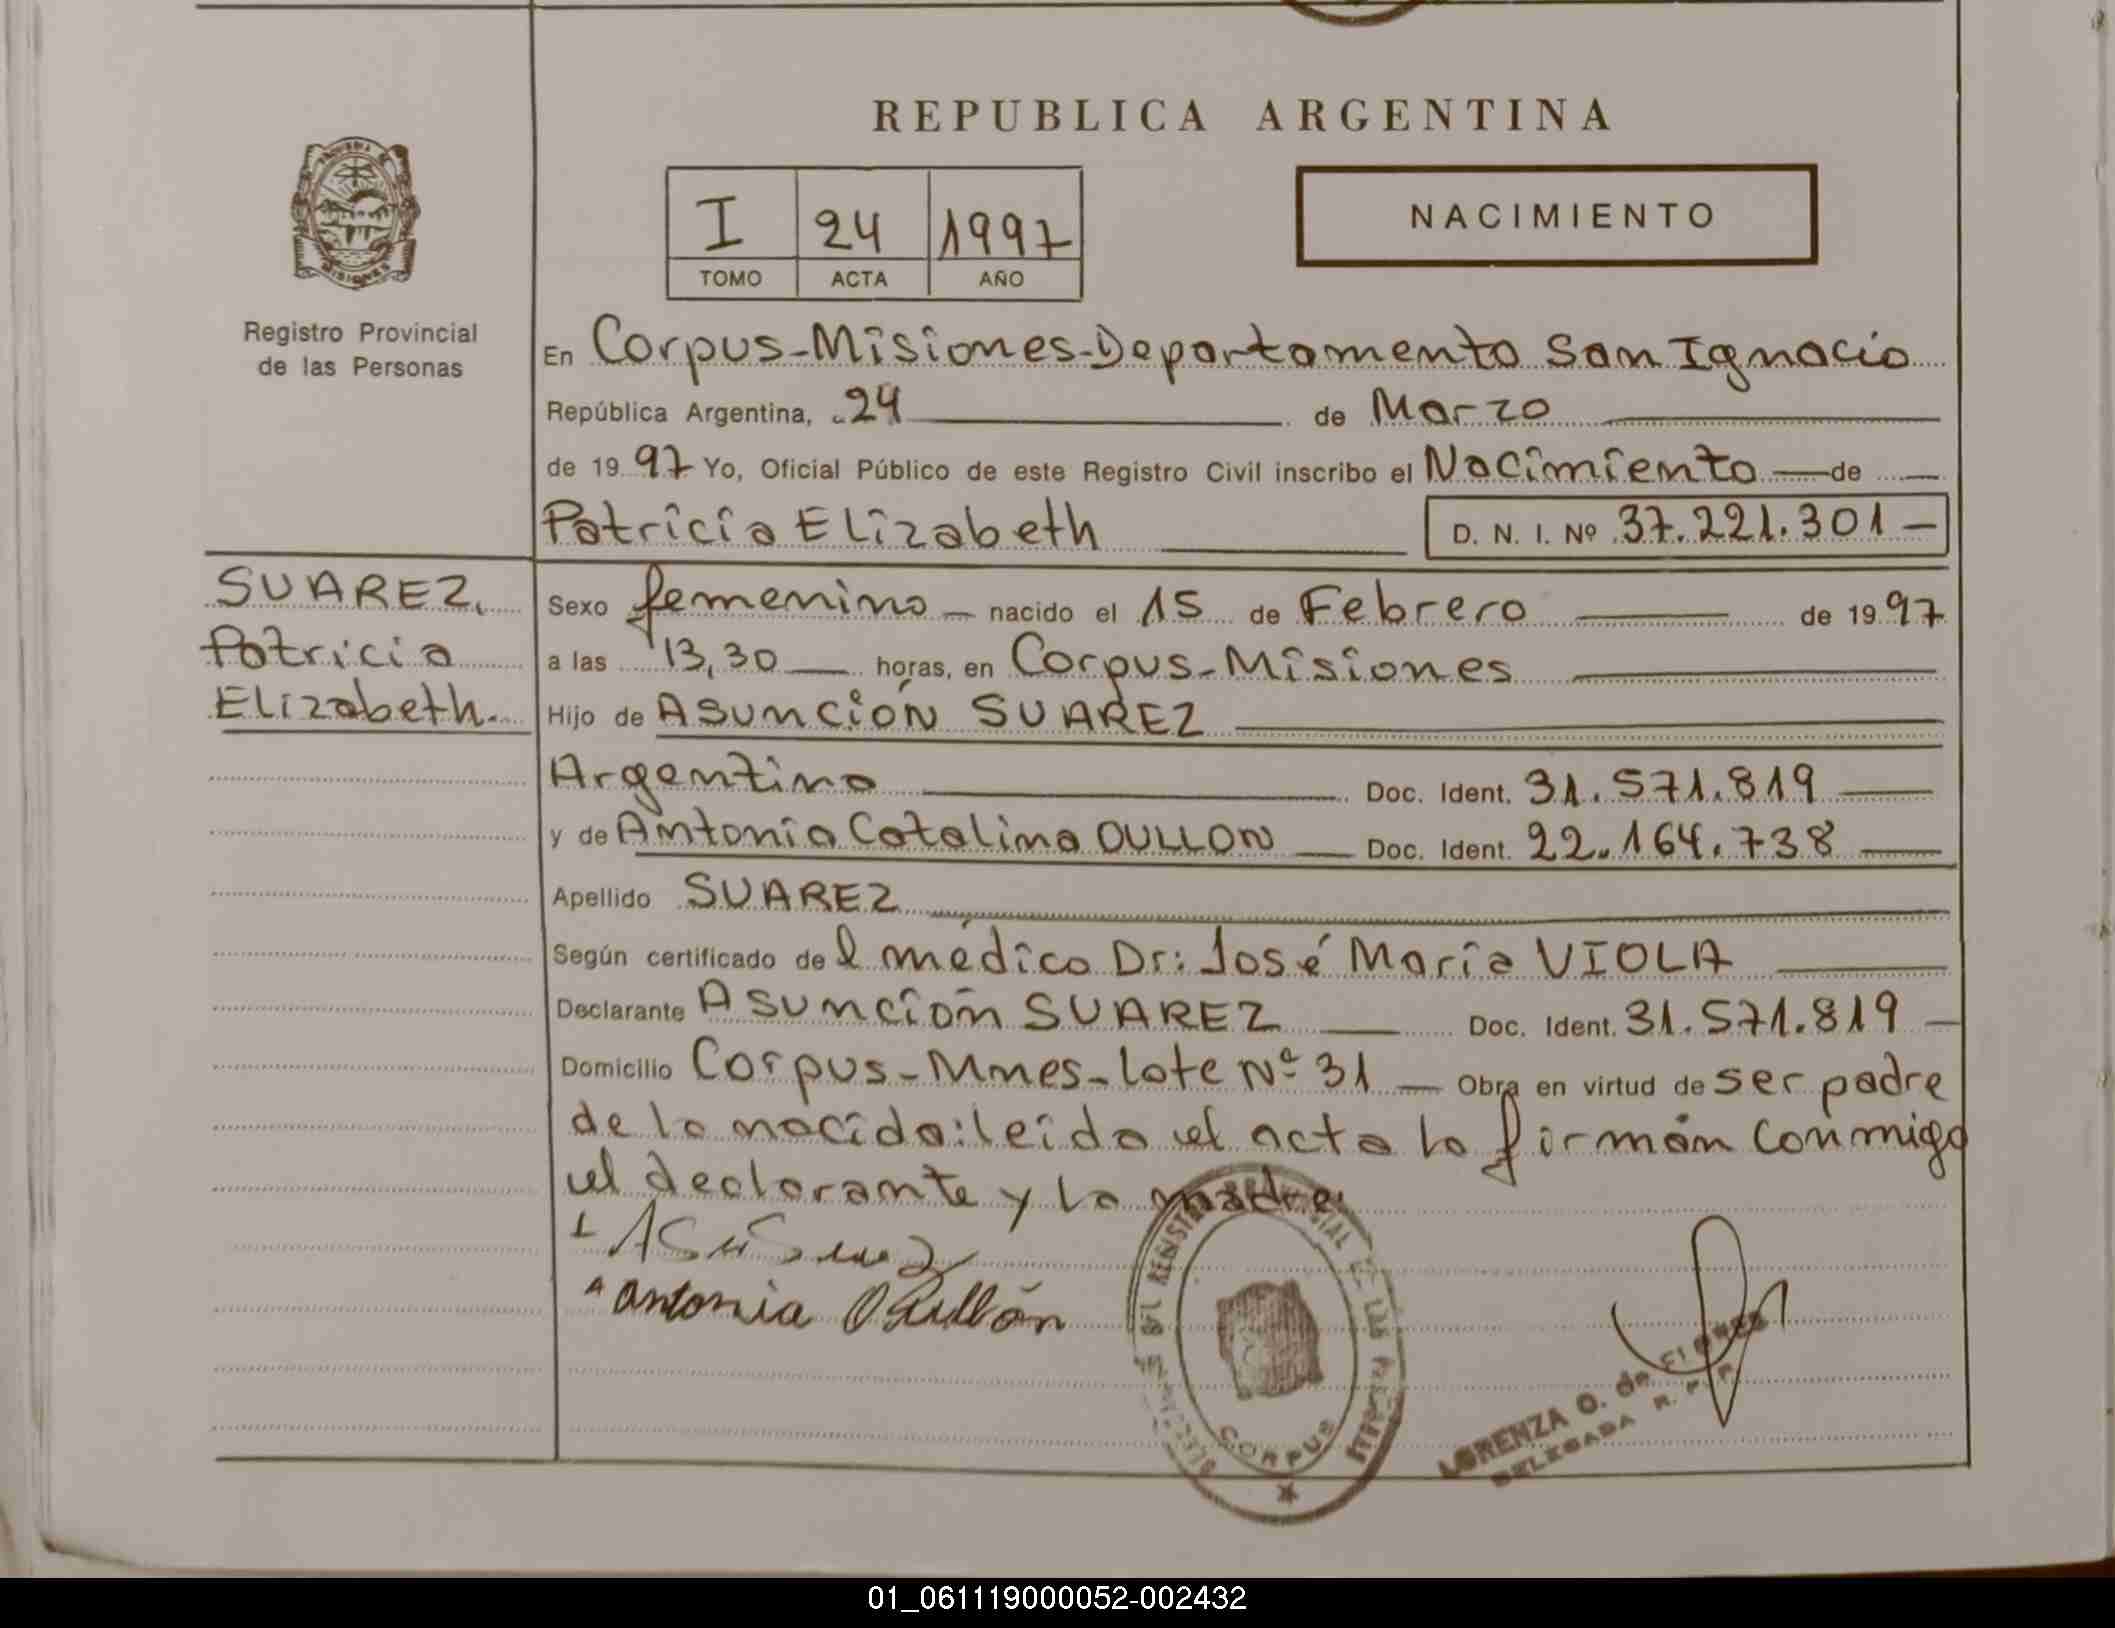 REPUBLICA ARGENTINA
I 24 1997
TOMO ACTA AÑO
NACIMIENTO
Registro Provincial
de las Personas
En Corpus-Misiones-Departamento San Ignacio
República Argentina, 24 de Marzo
de 1997 Yo, Oficial Público de este Registro Civil inscribo el Nacimiento de
Patricia Elizabeth D. N. I. Nº 37.221.301
SUAREZ,
Patricia
Elizabeth.
Sexo femenino nacido el 15 de Febrero de 1997
a las 13,30 horas, en Corpus-Misiones
Hijo de Asunción SUAREZ
Argentino Doc. Ident. 31.571.819
y de Antonia Catalina OULLON Doc. Ident. 22.164.738
Apellido SUAREZ
Según certificado del médico Dr: José María VIOLA
Declarante Asunción SUAREZ Doc. Ident. 31.571.819
Domicilio Corpus-Mnes-lote Nº 31 Obra en virtud de ser padre
de la nacida: leida el acta la firmán conmigo
el declarante y la madre.
Antonia Oullón
REGISTRO PROVINCIAL DE LAS PERSONAS
CORPUS
LORENZA O. de FLORES
DELEGADA R. P. P.
01_061119000052-002432